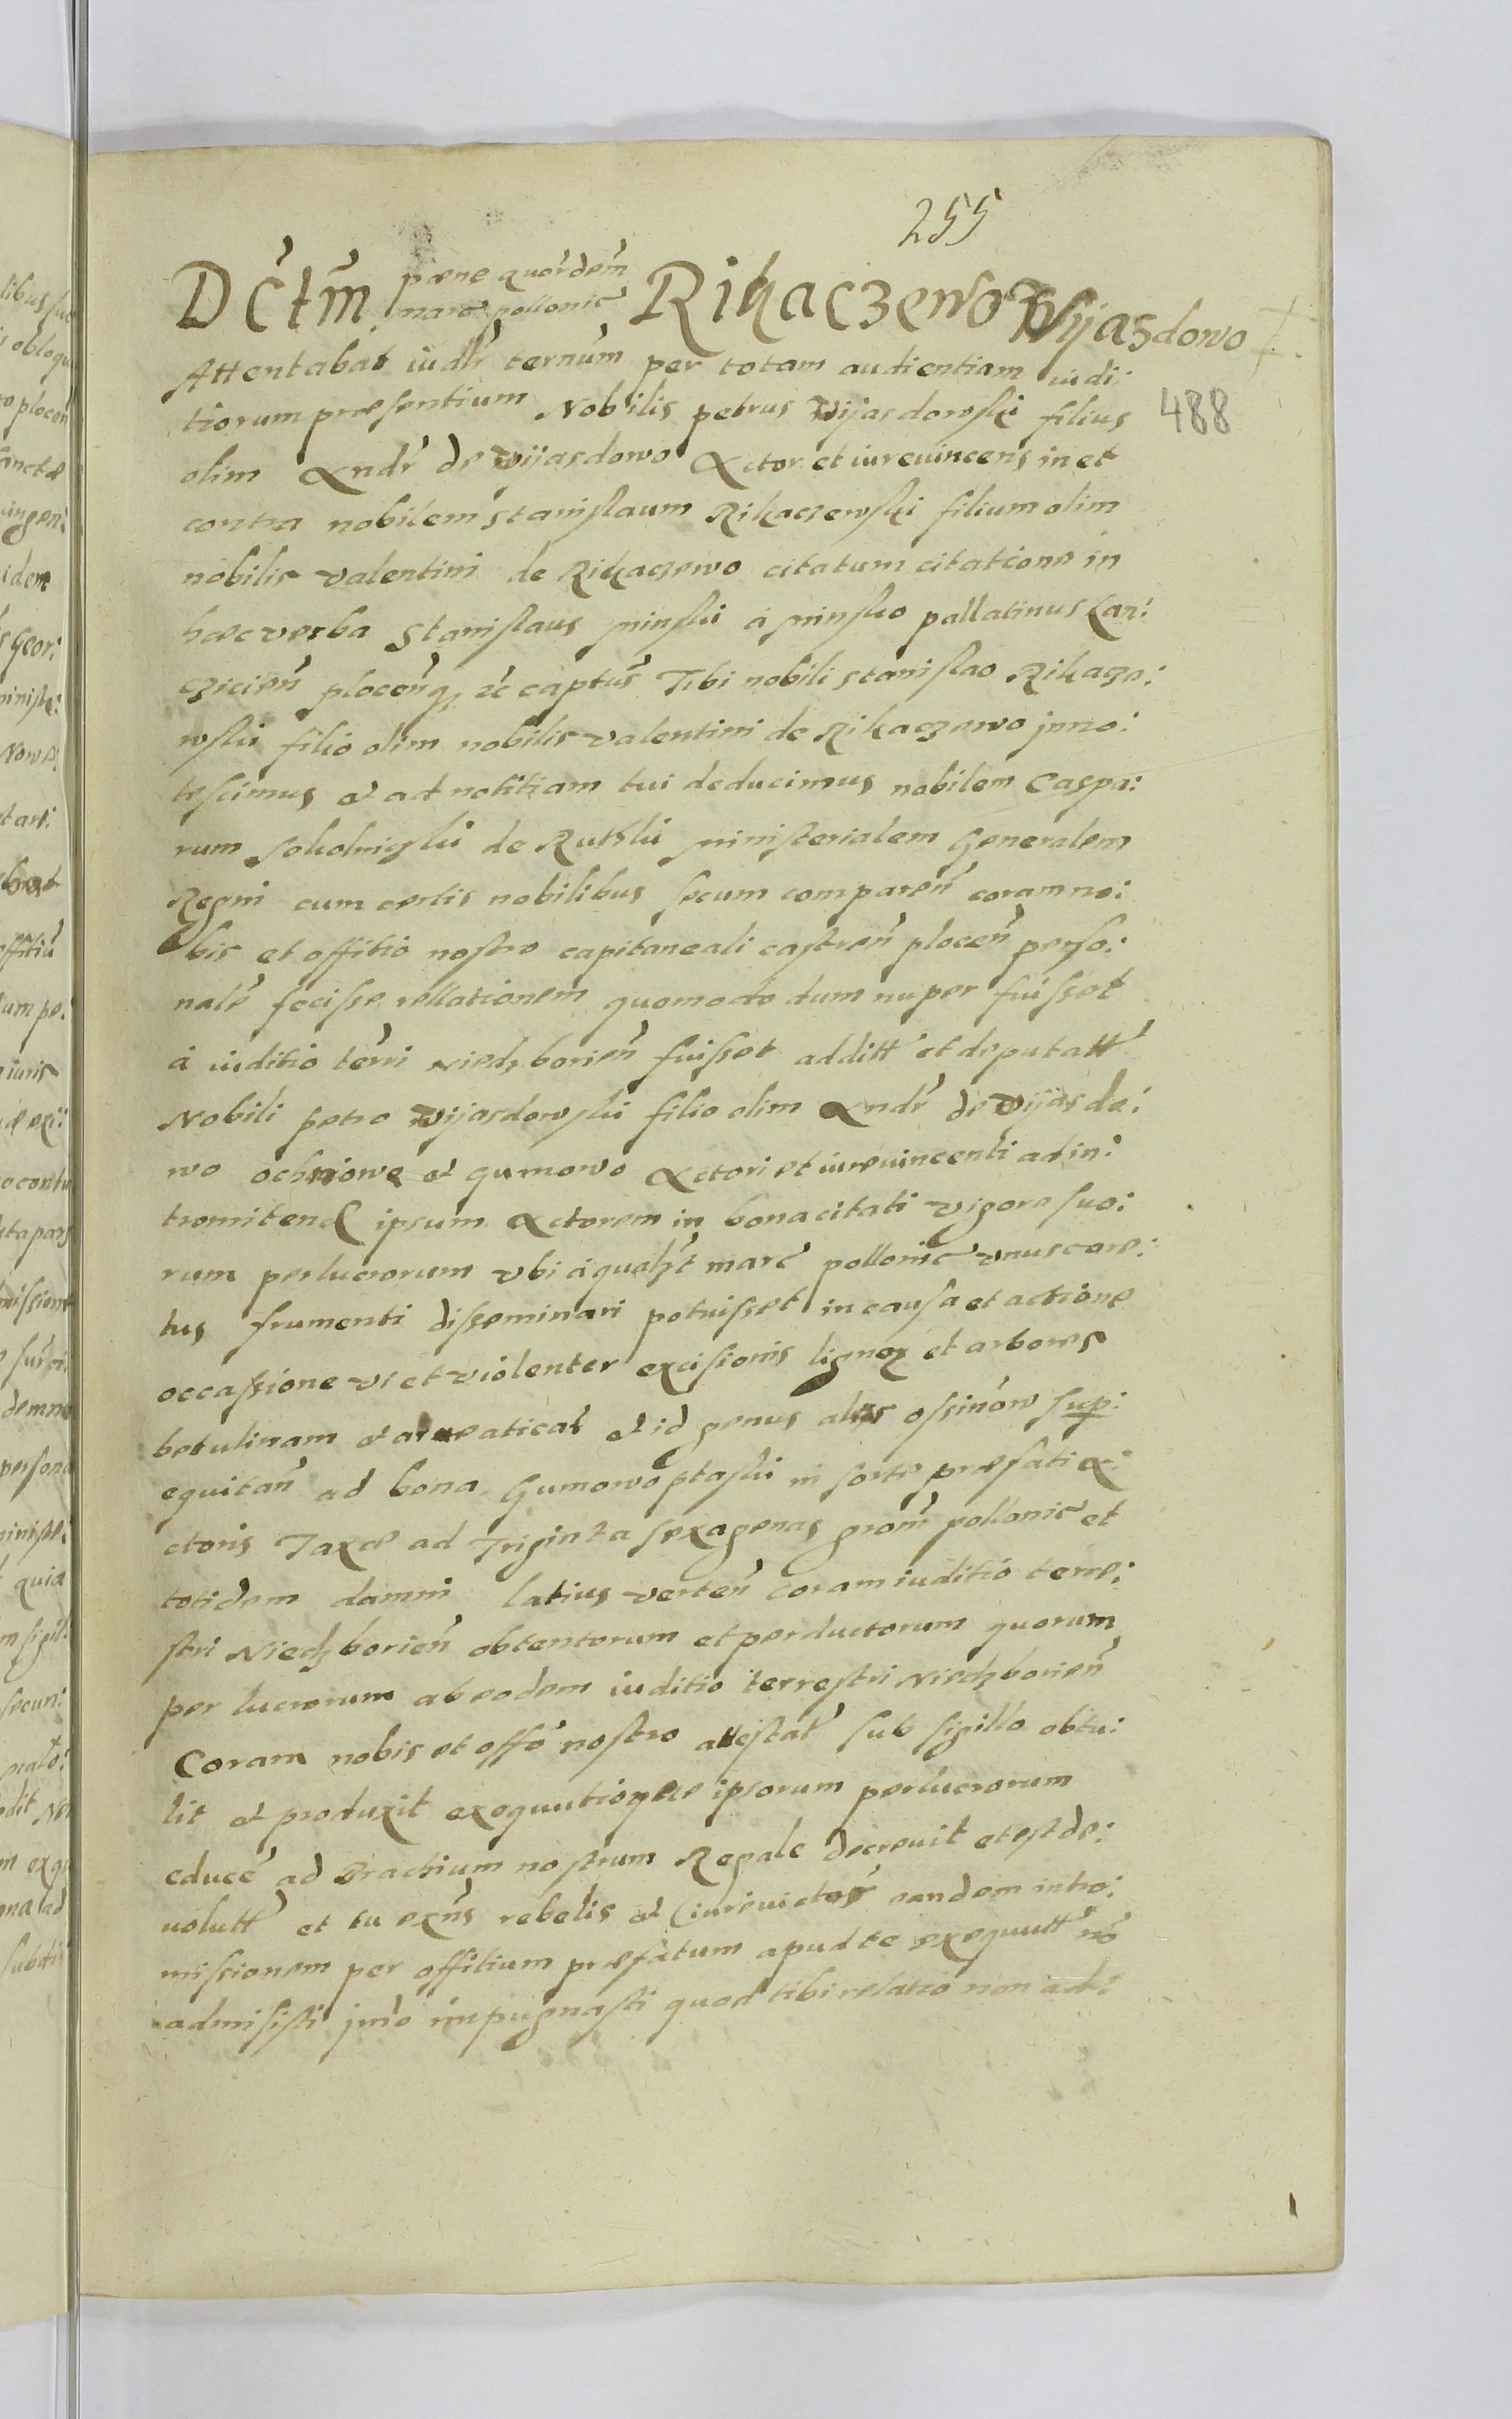 255
Dctm pæne quordem Rikaczewo Wijasdowo
marc pollonic
Attentabat iudtr ternum per totam audientiam iudi:
488
tiorum præsentium Nobilis petrus Wijasdowski filius
olim Andr de Wijasdowo Actor et iureuincens in et
contra nobilem Stanislaum Rikaczewski filium olim
nobilis Valentini de Rikaczewo citatum citatione in
hæc verba Stanislaus Minski á Minsko pallatinus Lan:
czicien plocenq zc captus Tibi nobili Stanislao Rikacze:
wski filio olim nobilis Valentini de Rikaczewo inno:
tescimus et ad notitiam tui deducimus nobilem Caspa:
rum Sokolniczki de Rutki ministerialem Generalem
Regni cum certis nobilibus secum comparen coram no:
bis et offitio nostro capitaneali castren plocen perso:
nale fecisse rellationem quomodo dum nuper fuisset
á iuditio terri Niedzborien fuisset additt et deputatt
Nobili petro Wijasdowski filio olim Andr de Wijasdo:
wo ochniowe et gumowo Actori et iureuincenti ad in:
tromitend ipsum Actorem in bona citati vigore suo:
rum perlucrorum vbi á qualzt marc pollonic vnus core:
tus frumenti disseminari potuisset in causa et actione
occassione vi et violenter excisionis lignor et arbores
betulinam et et id genus alias ossinow sup:
equitan ad bona Gumowo ptaski in sorte præfati A:
ctoris Taxæ ad Triginta sexagenas grom pollonic et
totidem damni latius verten coram iuditio terre:
stri Niedzborien obtentorum et perductorum quorum
per lucrorum ab eodem iuditio terrestri Niedzborien
Coram nobis et offo nostro attestat sub sigillo obtu:
lit et produxit exequutionem ipsorum perlucrorum
educe ad Brachium nostrum Regale decreuit et est de:
uolutt et tu exns rebelis et iureuictus eandem intro:
missionem per offitium præfatum apud te exequutt no
admisisti imo impugnasti quod tibi relatio non ad: